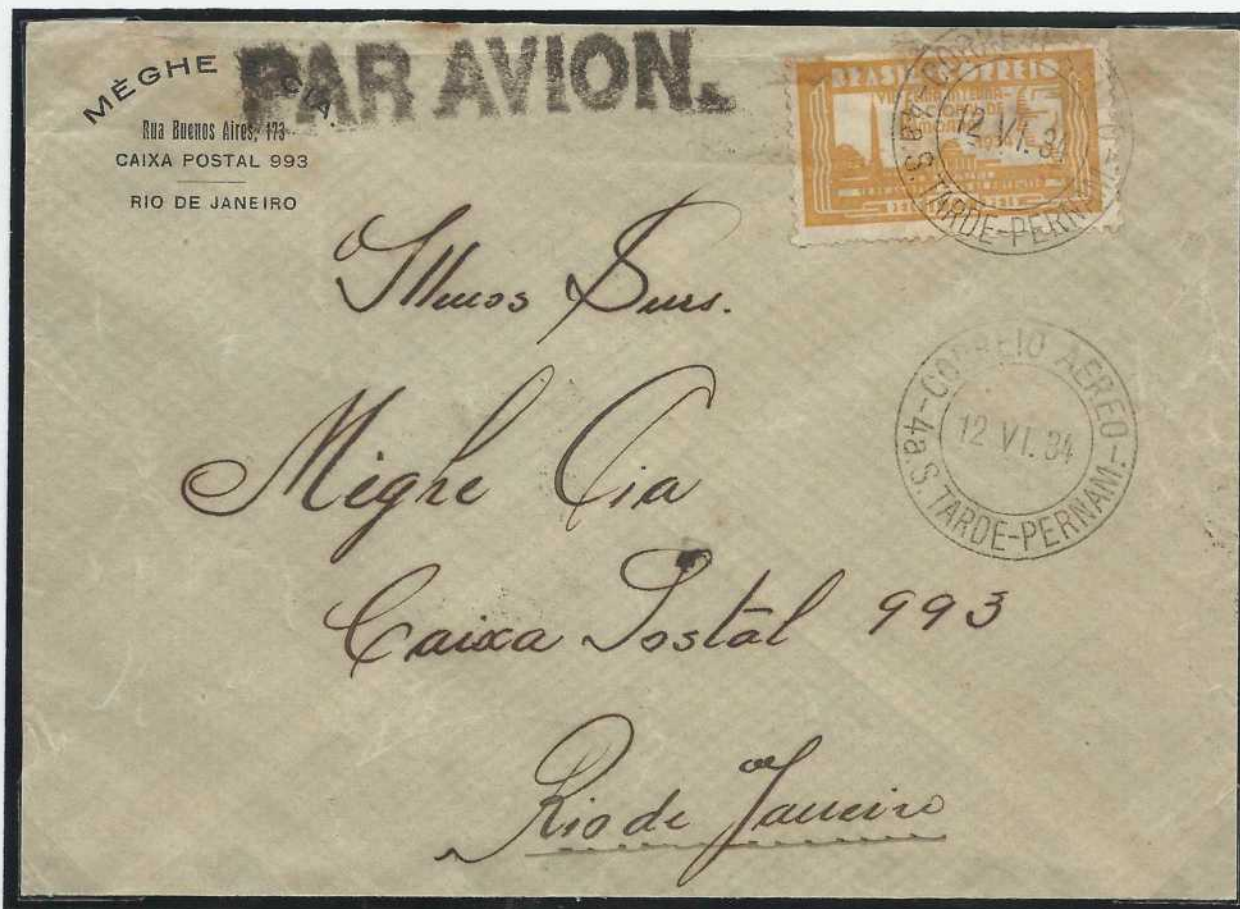 MÈGHE CIA.
Rua Buenos Aires, 173
CAIXA POSTAL 993
RIO DE JANEIRO
PAR AVION.
BRASIL CORREIO
12 VI. 34
4a. S. TARDE-PERNAM.
Illmos Snrs.
Mèghe Cia
Caixa Postal 993
Rio de Janeiro
-CORREIO AEREO-
12 VI. 34
4a. S. TARDE-PERNAM.